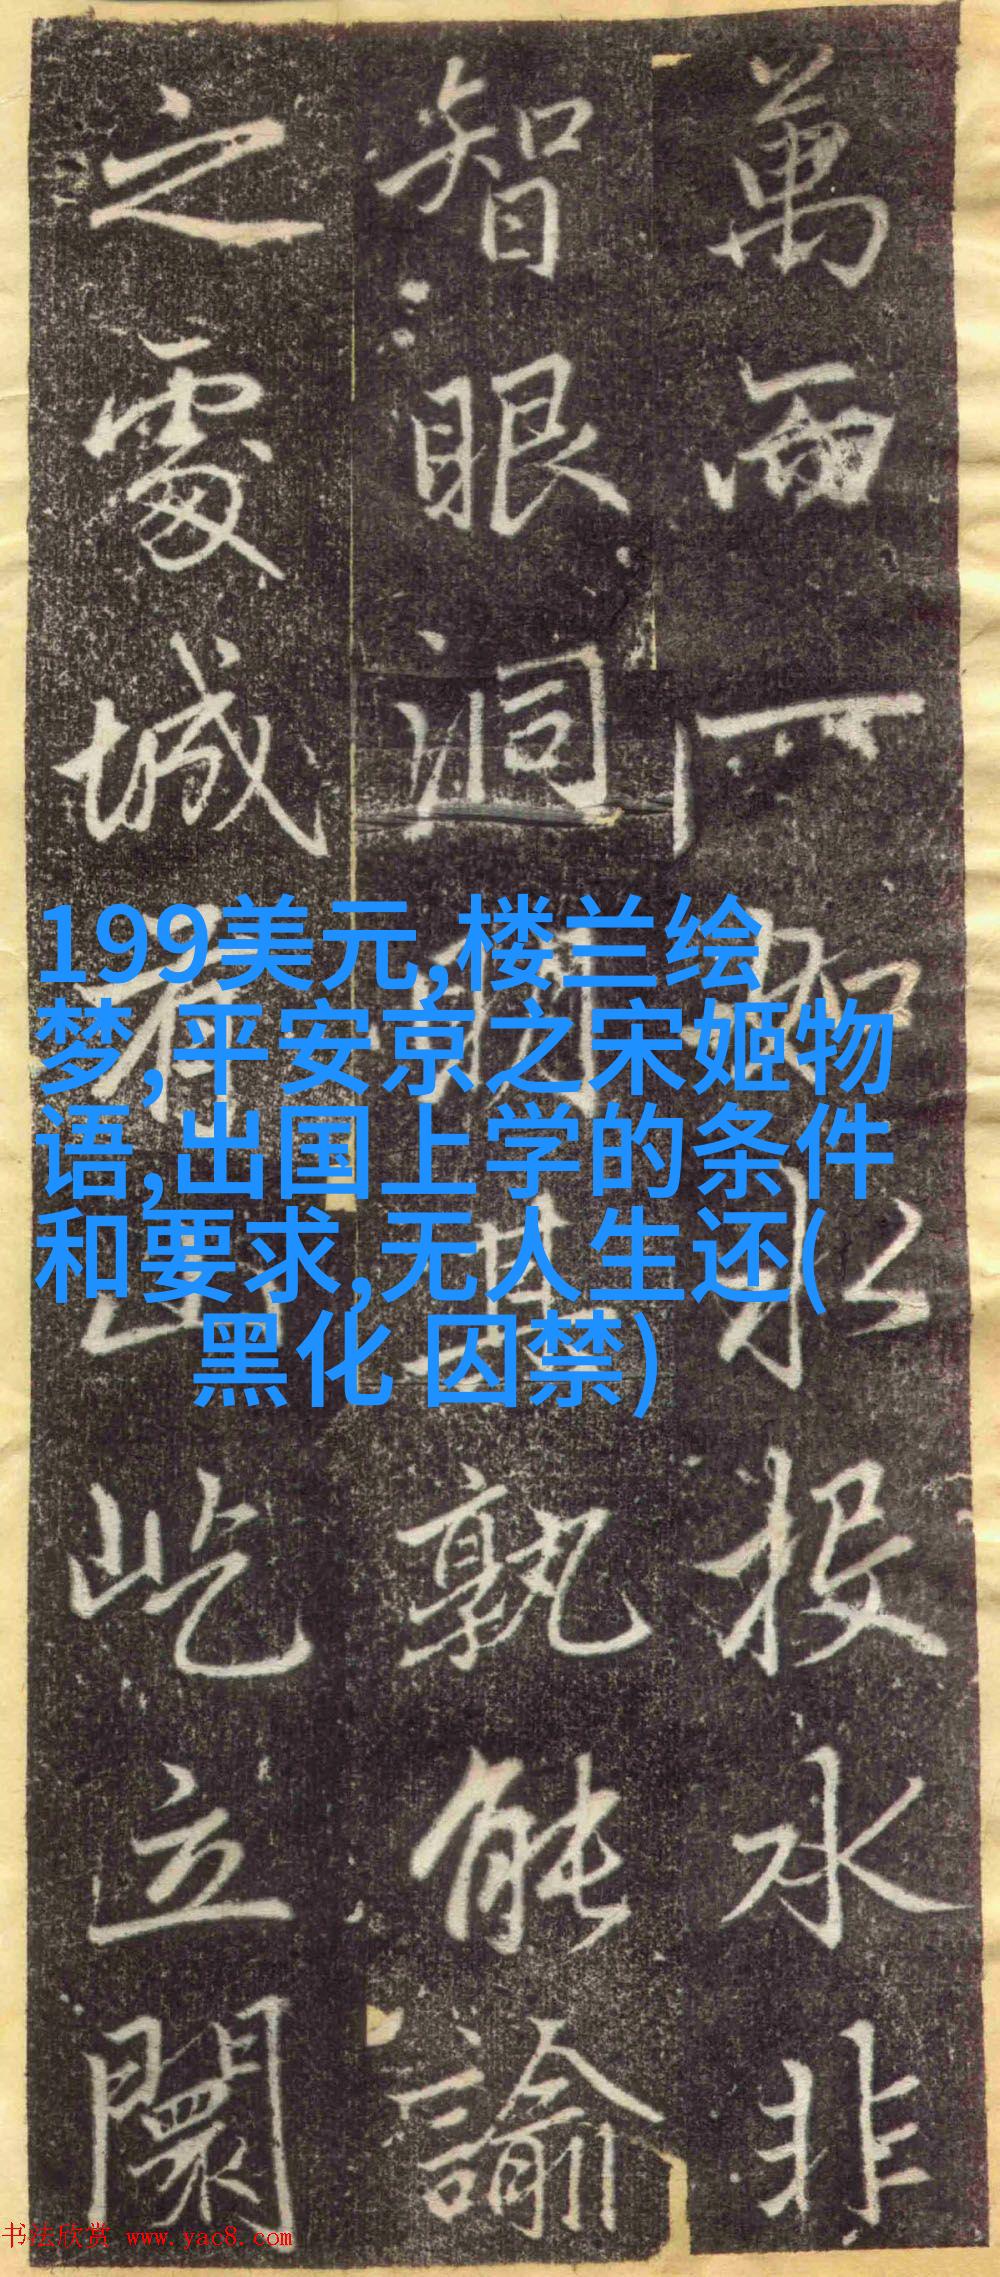 萬而一如水投水非
智眼洞其孰能諭
之處城山屹立闤
199美元,楼兰绘
梦,平安京之宋姬物
语,出国上学的条件
和要求,无人生还(
黑化 囚禁)
书法欣赏 www.yac8.com